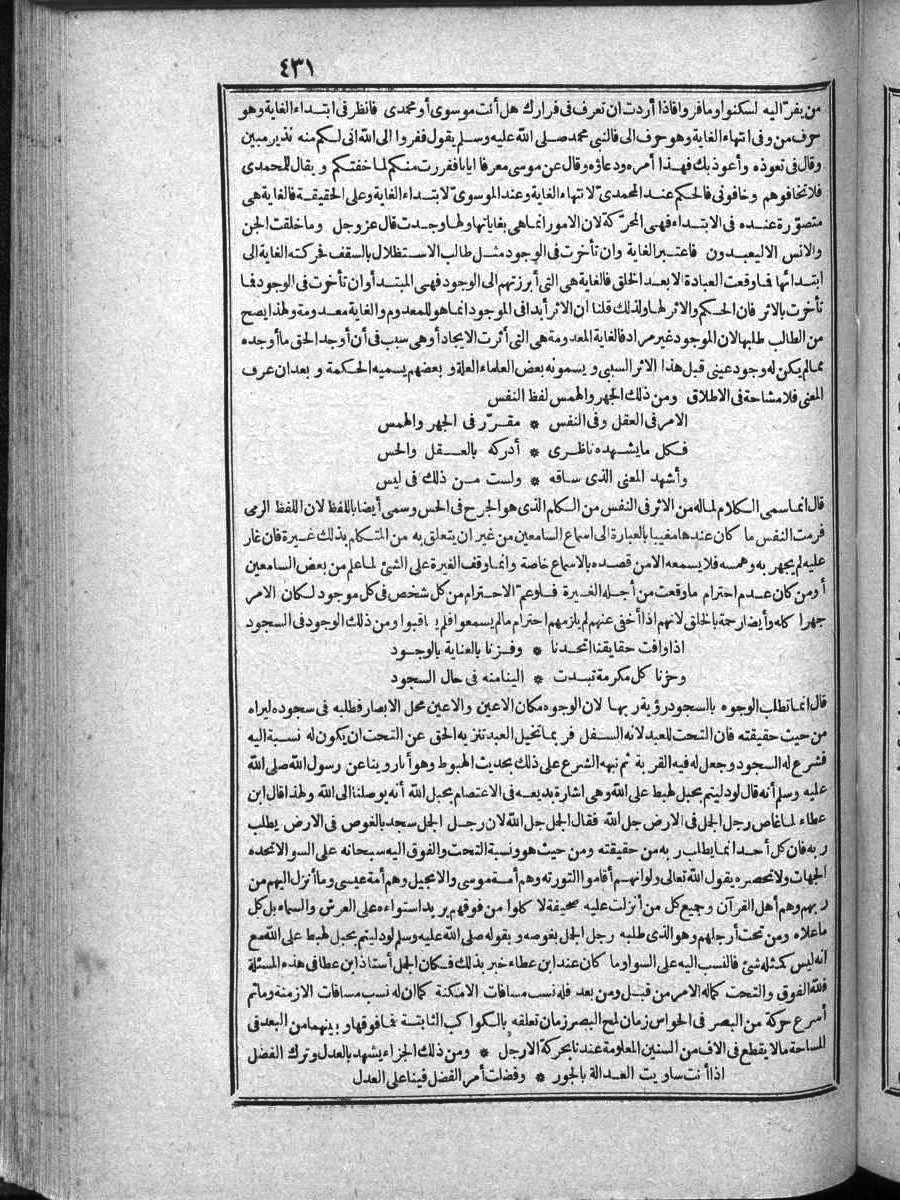 ٤٣١
من يفرّ اليه لسكنوا وما فروا فاذا أردت ان تعرف فى فرارك هل أنت موسوى أو محمدى فانظر فى ابتداء الغاية وهو
حرف من وفى انتهاء الغاية وهو حرف الى فالنبى محمد صلى الله عليه وسلم يقول ففروا الى الله انى لكم منه نذير مبين
وقال فى تعوذه وأعوذ بك فهذا أمره ودعاؤه وقال عن موسى معرفا ايانا ففررت منكم لما خفتكم ويقال للمحمدى
فلا تخافوهم وخافونى فالحكم عند المحمدىّ لانتهاء الغاية وعند الموسوىّ لابتداء الغاية وعلى الحقيقة فالغاية هى
متصوّرة عنده فى الابتداء فهى المحرّكة لان الامور انما هى بغاياتها ولها وجدت قال عز وجل وما خلقت الجن
والانس الا ليعبدون فاعتبر الغاية وان تأخرت فى الوجود مثل طالب الاستظلال بالسقف فحركته الغاية الى
ابتدائها فما وقعت العبادة الا بعد الخلق فالغاية هى التى أبرزتهم الى الوجود فهى المبتدأ وان تأخرت فى الوجود فما
تأخرت بالاثر فان الحكم والاثر لها ولذلك قلنا ان الاثر أبدا فى الموجود انما هو للمعدوم والغاية معدومة ولهذا يصح
من الطالب طلبها لان الموجود غير مراد فالغاية المعدومة هى التى أثرت الايجاد أو هى سبب فى أن أوجد الحق ما أوجده
مما لم يكن له وجود عينى قبل هذا الاثر السببى ويسمونه بعض العلماء العلة وبعضهم يسميه الحكمة وبعد ان عرف
المعنى فلا مشاحة فى الاطلاق ومن ذلك الجهر والهمس لفظ النفس
الامر فى العقل وفى النفس * مقرّر فى الجهر والهمس
فكل ما يشهده ناظرى * أدركه بالعقل والحس
وأشهد المعنى الذى ساقه * ولست من ذلك فى لبس
قال انما سمى الكلام لما له من الاثر فى النفس من الكلم الذى هو الجرح فى الحس وسمى أيضا باللفظ لان اللفظ الرمى
فرمت النفس ما كان عندها مغيبا بالعبارة الى اسماع السامعين من غير ان يتعلق به من المتكلم بذلك غيرة فان غار
عليه لم يجهر به وهمسه فلا يسمعه الا من قصده بالاسماع خاصة وانما وقف الغيرة على الشئ لما علم من بعض السامعين
أو من كان عدم احترام ما وقعت من أجله الغيرة فلو عمّ الاحترام من كل شخص فى كل موجود لكان الامر
جهرا كله وأيضا رحمة بالخلق لانهم اذا أخفى عنهم لم يلزمهم احترام ما لم يسمعوا فلم يعاقبوا ومن ذلك الوجود فى السجود
اذا وافت حقايقنا اتحدنا * وفزنا بالعناية بالوجود
وحزنا كل مكرمة تبدت * الينا منه فى حال السجود
قال انما تطلب الوجوه بالسجود رؤية ربها لان الوجوه مكان الاعين والاعين محل الابصار فطلبه فى سجوده ليراه
من حيث حقيقته فان التحت للعبد لانه السفل فربما تخيل العبد تنزيه الحق عن التحت ان يكون له نسبة اليه
فشرع له السجود وجعل له فيه القربة ثم نبهه الشرع على ذلك بحديث الهبوط وهو أنا روينا عن رسول الله صلى الله
عليه وسلم أنه قال لو دليتم بحبل لهبط على الله وهى اشارة بديعة فى الاعتصام بحبل الله أنه يوصلنا الى الله ولهذا قال ابن
عطاء لما غاص رجل الجمل فى الارض جل الله فقال الجمل جل الله لان رجل الجمل سجد بالغوص فى الارض يطلب
ربه فان كل أحد انما يطلب ربه من حقيقته ومن حيث هو ونسبة التحت والفوق اليه سبحانه على السوا لا تحده
الجهات ولا تحصره يقول الله تعالى ولو انهم أقاموا التورية وهم أمة موسى والانجيل وهم أمة عيسى وما أنزل اليهم من
ربهم وهم أهل القرآن وجميع كل من أنزلت عليه صحيفة لاكلوا من فوقهم يريد استواءه على العرش والسماء بل كل
ما علاه ومن تحت أرجلهم وهو الذى طلبه رجل الجمل بغوصه وبقوله صلى الله عليه وسلم لو دليتم بحبل لهبط على الله مع
انه ليس كمثله شئ فالنسب اليه على السوا وما كان عند ابن عطاء خبر بذلك فكان الجمل أستاذ ابن عطا فى هذه المسئلة
فلله الفوق والتحت كما له الامر من قبل ومن بعد فله نسب مسافات الامكنة كما ان له نسب مسافات الازمنة وما ثم
أسرع حركة من البصر فى الحواس زمان لمح البصر زمان تعلقه بالكواكب الثابتة فما فوقها وبينهما من البعد فى
المساحة ما لا يقطع فى آلاف من السنين المعلومة عندنا بحركة الارجل * ومن ذلك الجزاء يشهد بالعدل وترك الفضل
اذا أنت ساويت العدالة بالجور * وفضلت أمر الفضل فينا على العدل